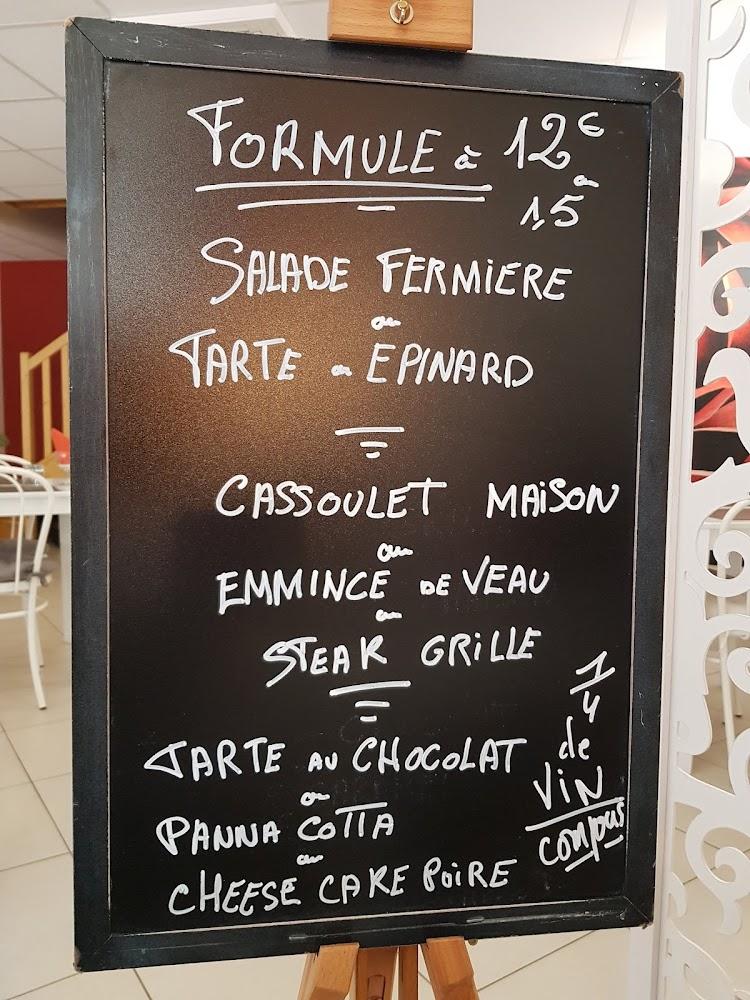 FORMULE à 12€
ou
15
SALADE FERMIERE
ou
TARTE au EPINARD
CASSOULET MAISON
ou
EMMINCE DE VEAU
ou
STEAK GRILLE
TARTE AU CHOCOLAT
ou
PANNA COTTA
ou
CHEESE CAKE POIRE
1/4
de
VIN
compus